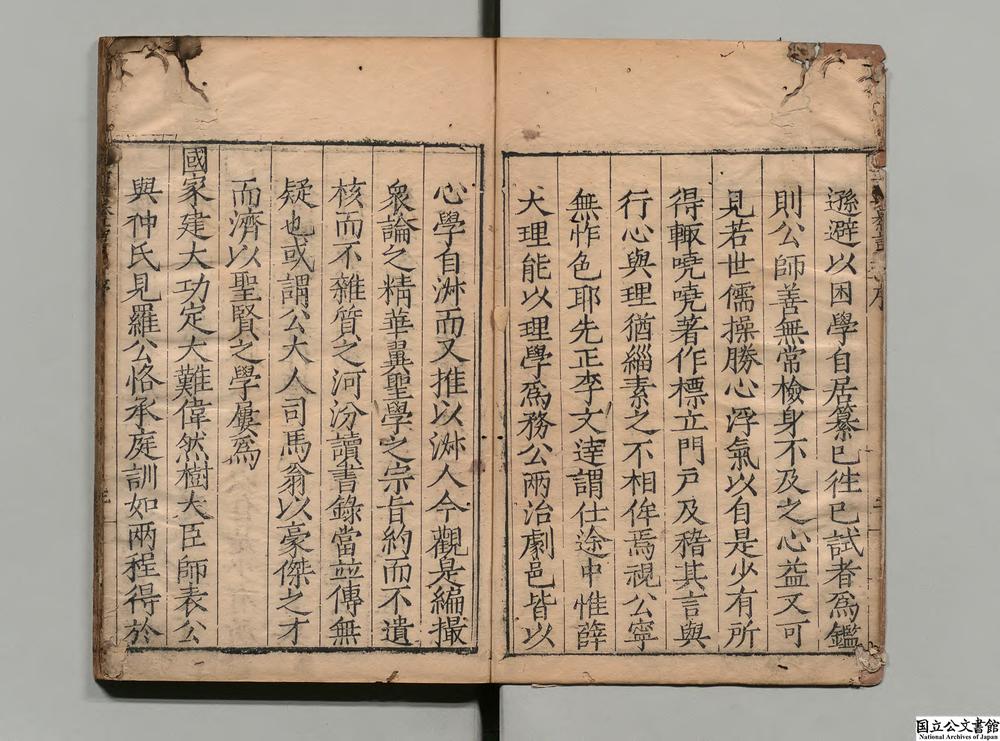 遜避以困學自居纂已徃已試者爲鑑
則公師善無常檢身不及之心益又可
見若世儒操勝心浮氣以自是少有所
得輙嘵嘵著作標立門戶及稽其言與
行心與理猶緇素之不相侔焉視公寧
無怍色耶先正李文達謂仕途中惟薛
大理能以理學爲務公兩治劇邑皆以
心學自淑而又推以淑人今觀是編撮
衆論之精華翼聖學之宗旨約而不遺
核而不雜質之河汾讀書錄當竝傳無
疑也或謂公大人司馬翁以豪傑之才
而濟以聖賢之學屢爲
國家建大功定大難偉然樹大臣師表公
與仲氏見羅公恪承庭訓如兩程得於
国立公文書館
National Archives of Japan